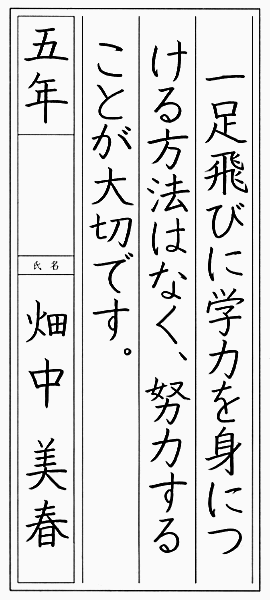 一足飛びに学力を身につ
ける方法はなく、努力する
ことが大切です。
五年
氏名
畑中 美春